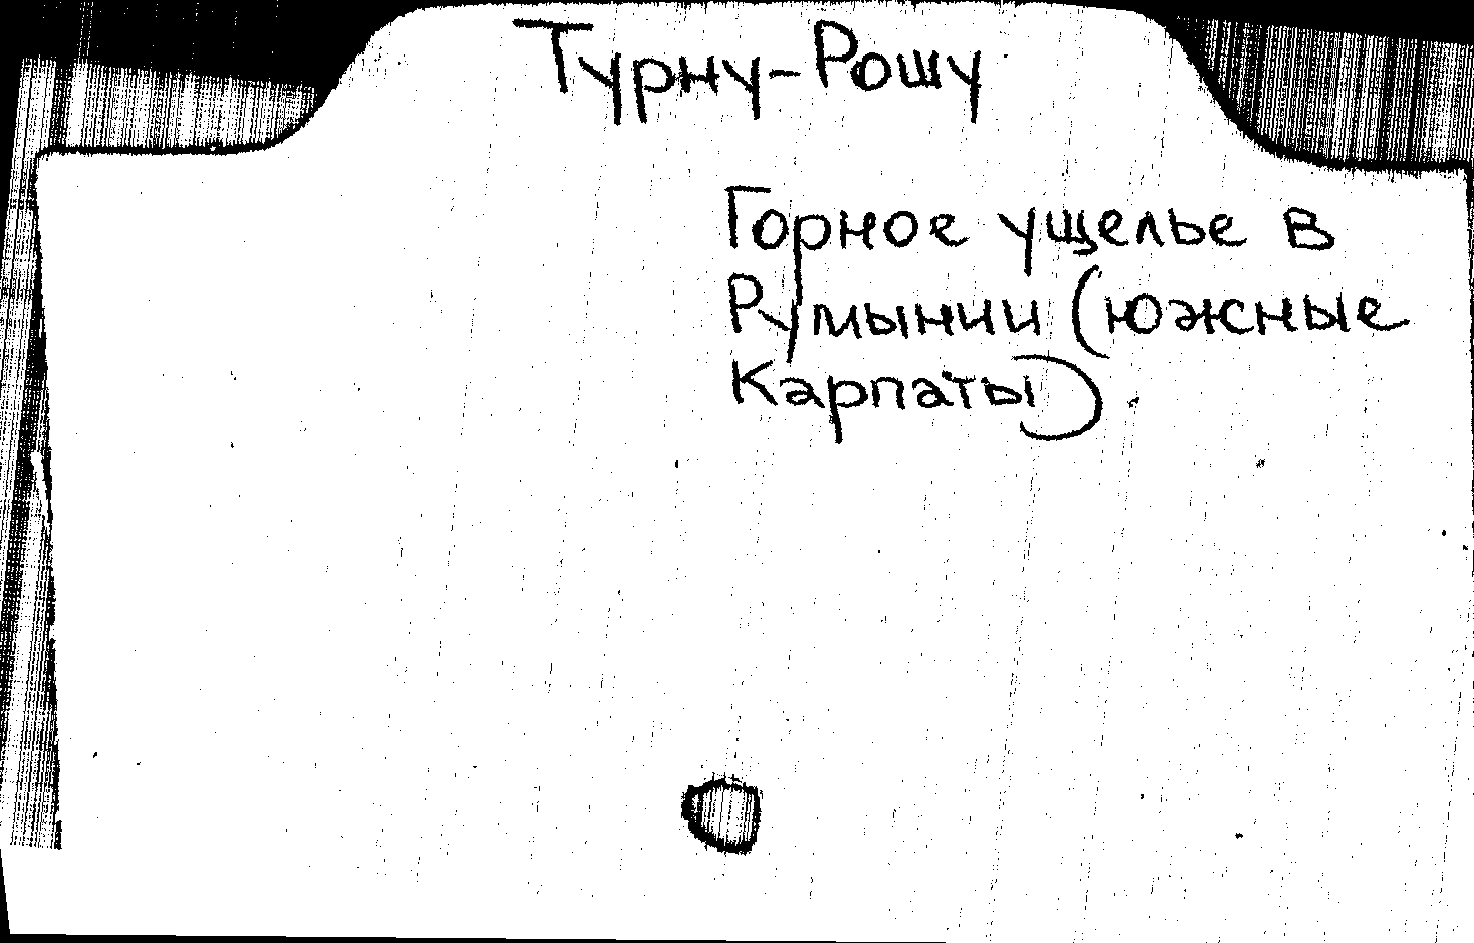 Турну-Рошу
Горное ущелье в
Румынии (южные
Карпаты)